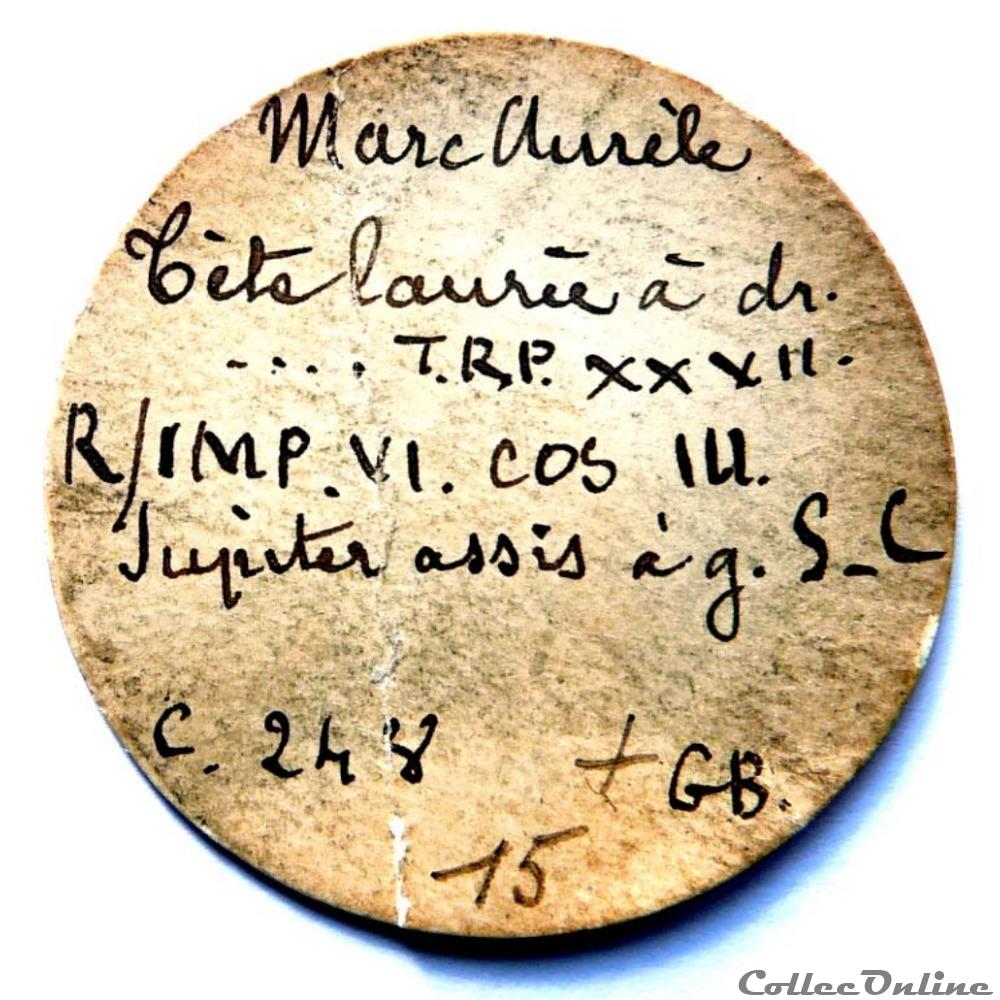 Marc Aurèle
Tète laurée à dr.
.... T.R.P. XXXVII.
R/IMP. VI. COS III.
Jupiter assis à g. S-C
C. 248 + GB.
15
CollecOnline